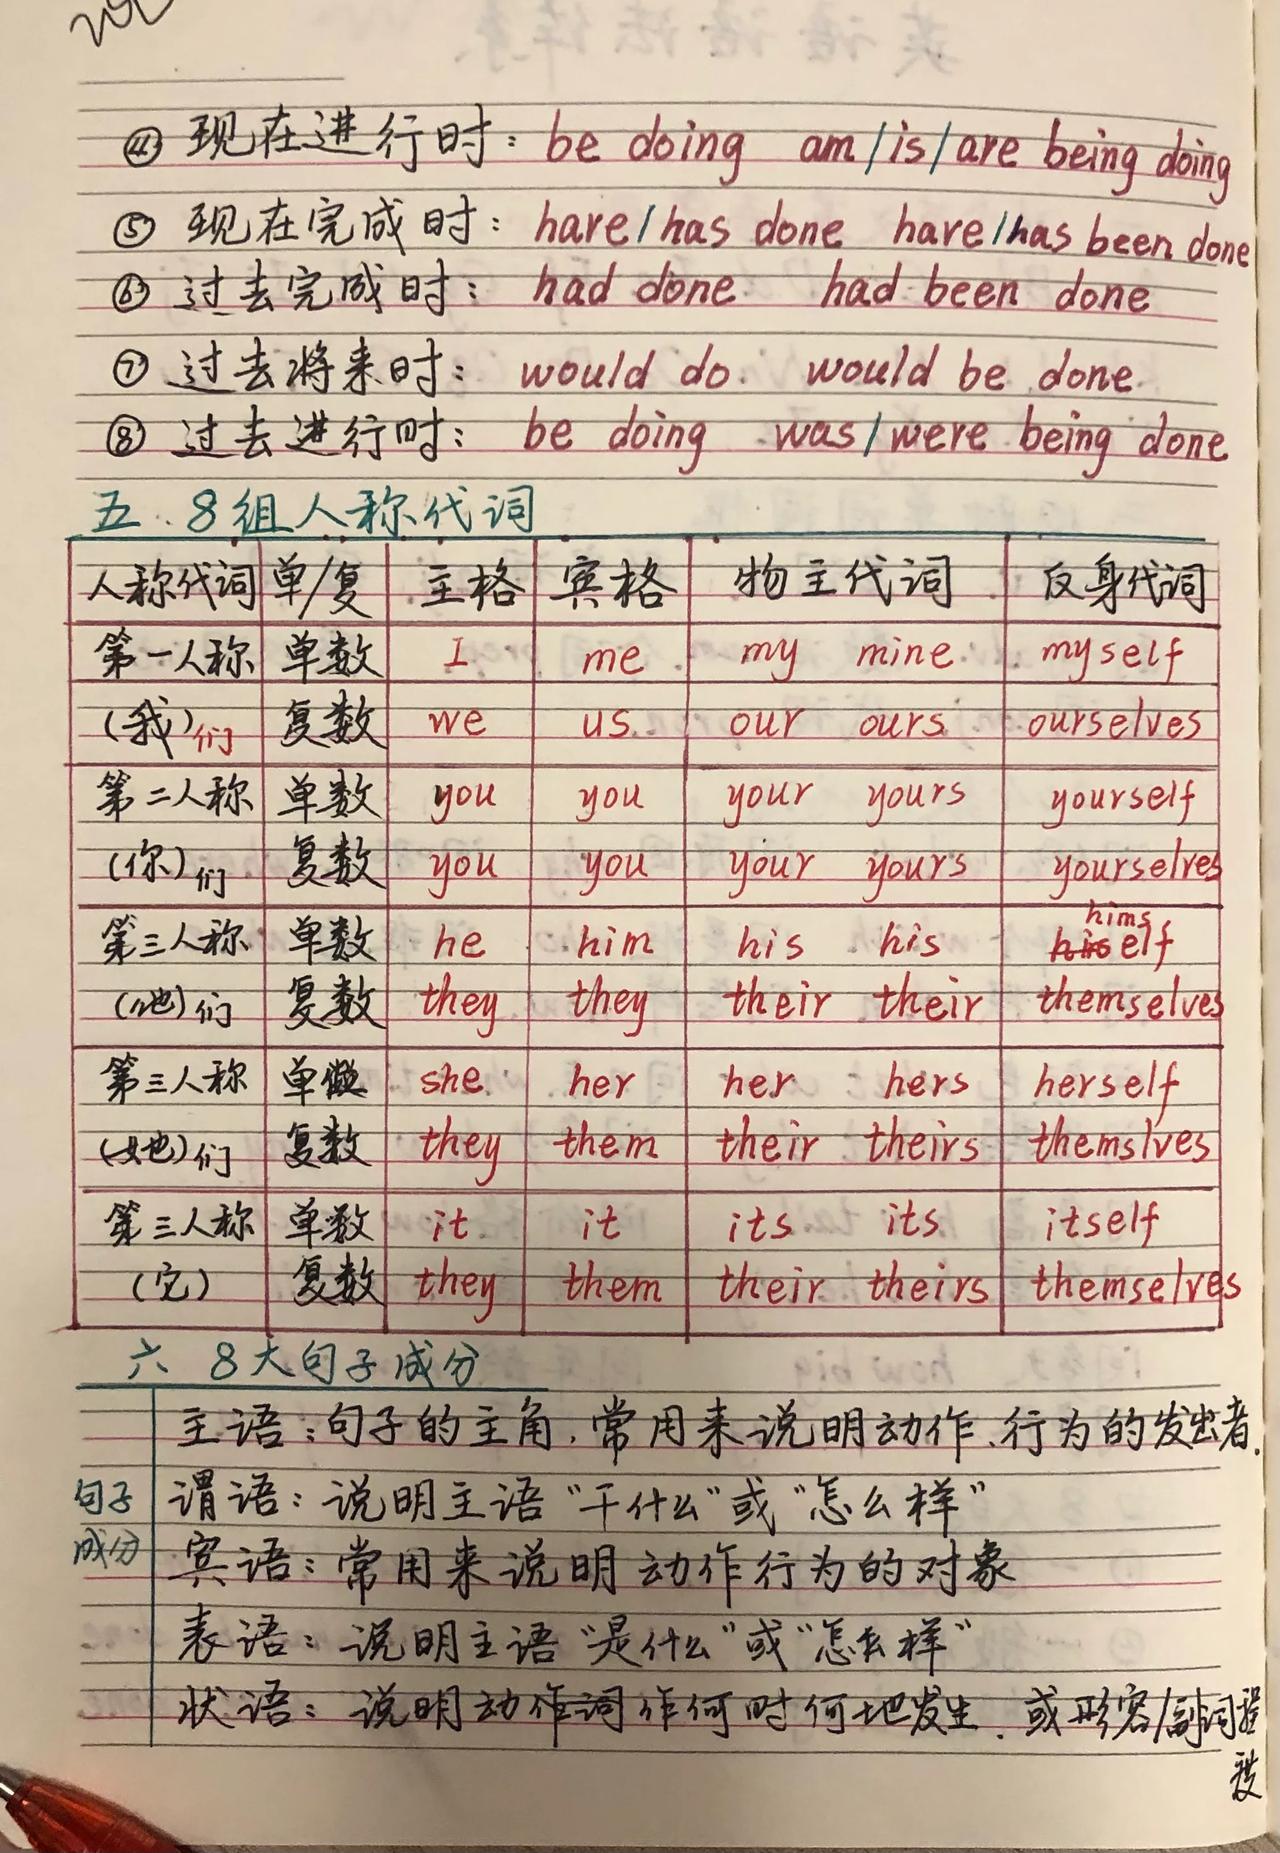 ④ 现在进行时: be doing am/is/are being doing
⑤ 现在完成时: have/has done have/has been done
⑥ 过去完成时: had done had been done
⑦ 过去将来时: would do would be done
⑧ 过去进行时: be doing was/were being done
五 8组人称代词
人称代词 单/复 主格 宾格 物主代词 反身代词
第一人称 单数 I me my mine myself
(我)们 复数 we us our ours ourselves
第二人称 单数 you you your yours yourself
(你)们 复数 you you your yours yourselves
第三人称 单数 he him his his himself
(他)们 复数 they they their their themselves
第三人称 单数 she her her hers herself
(她)们 复数 they them their theirs themslves
第三人称 单数 it it its its itself
(它) 复数 they them their theirs themselves
六 8大句子成分
句子成分
主语:句子的主角,常用来说明动作、行为的发出者.
谓语:说明主语"干什么"或"怎么样"
宾语:常用来说明动作行为的对象
表语:说明主语"是什么"或"怎么样"
状语:说明动作词作何时何地发生.或形容/副词程